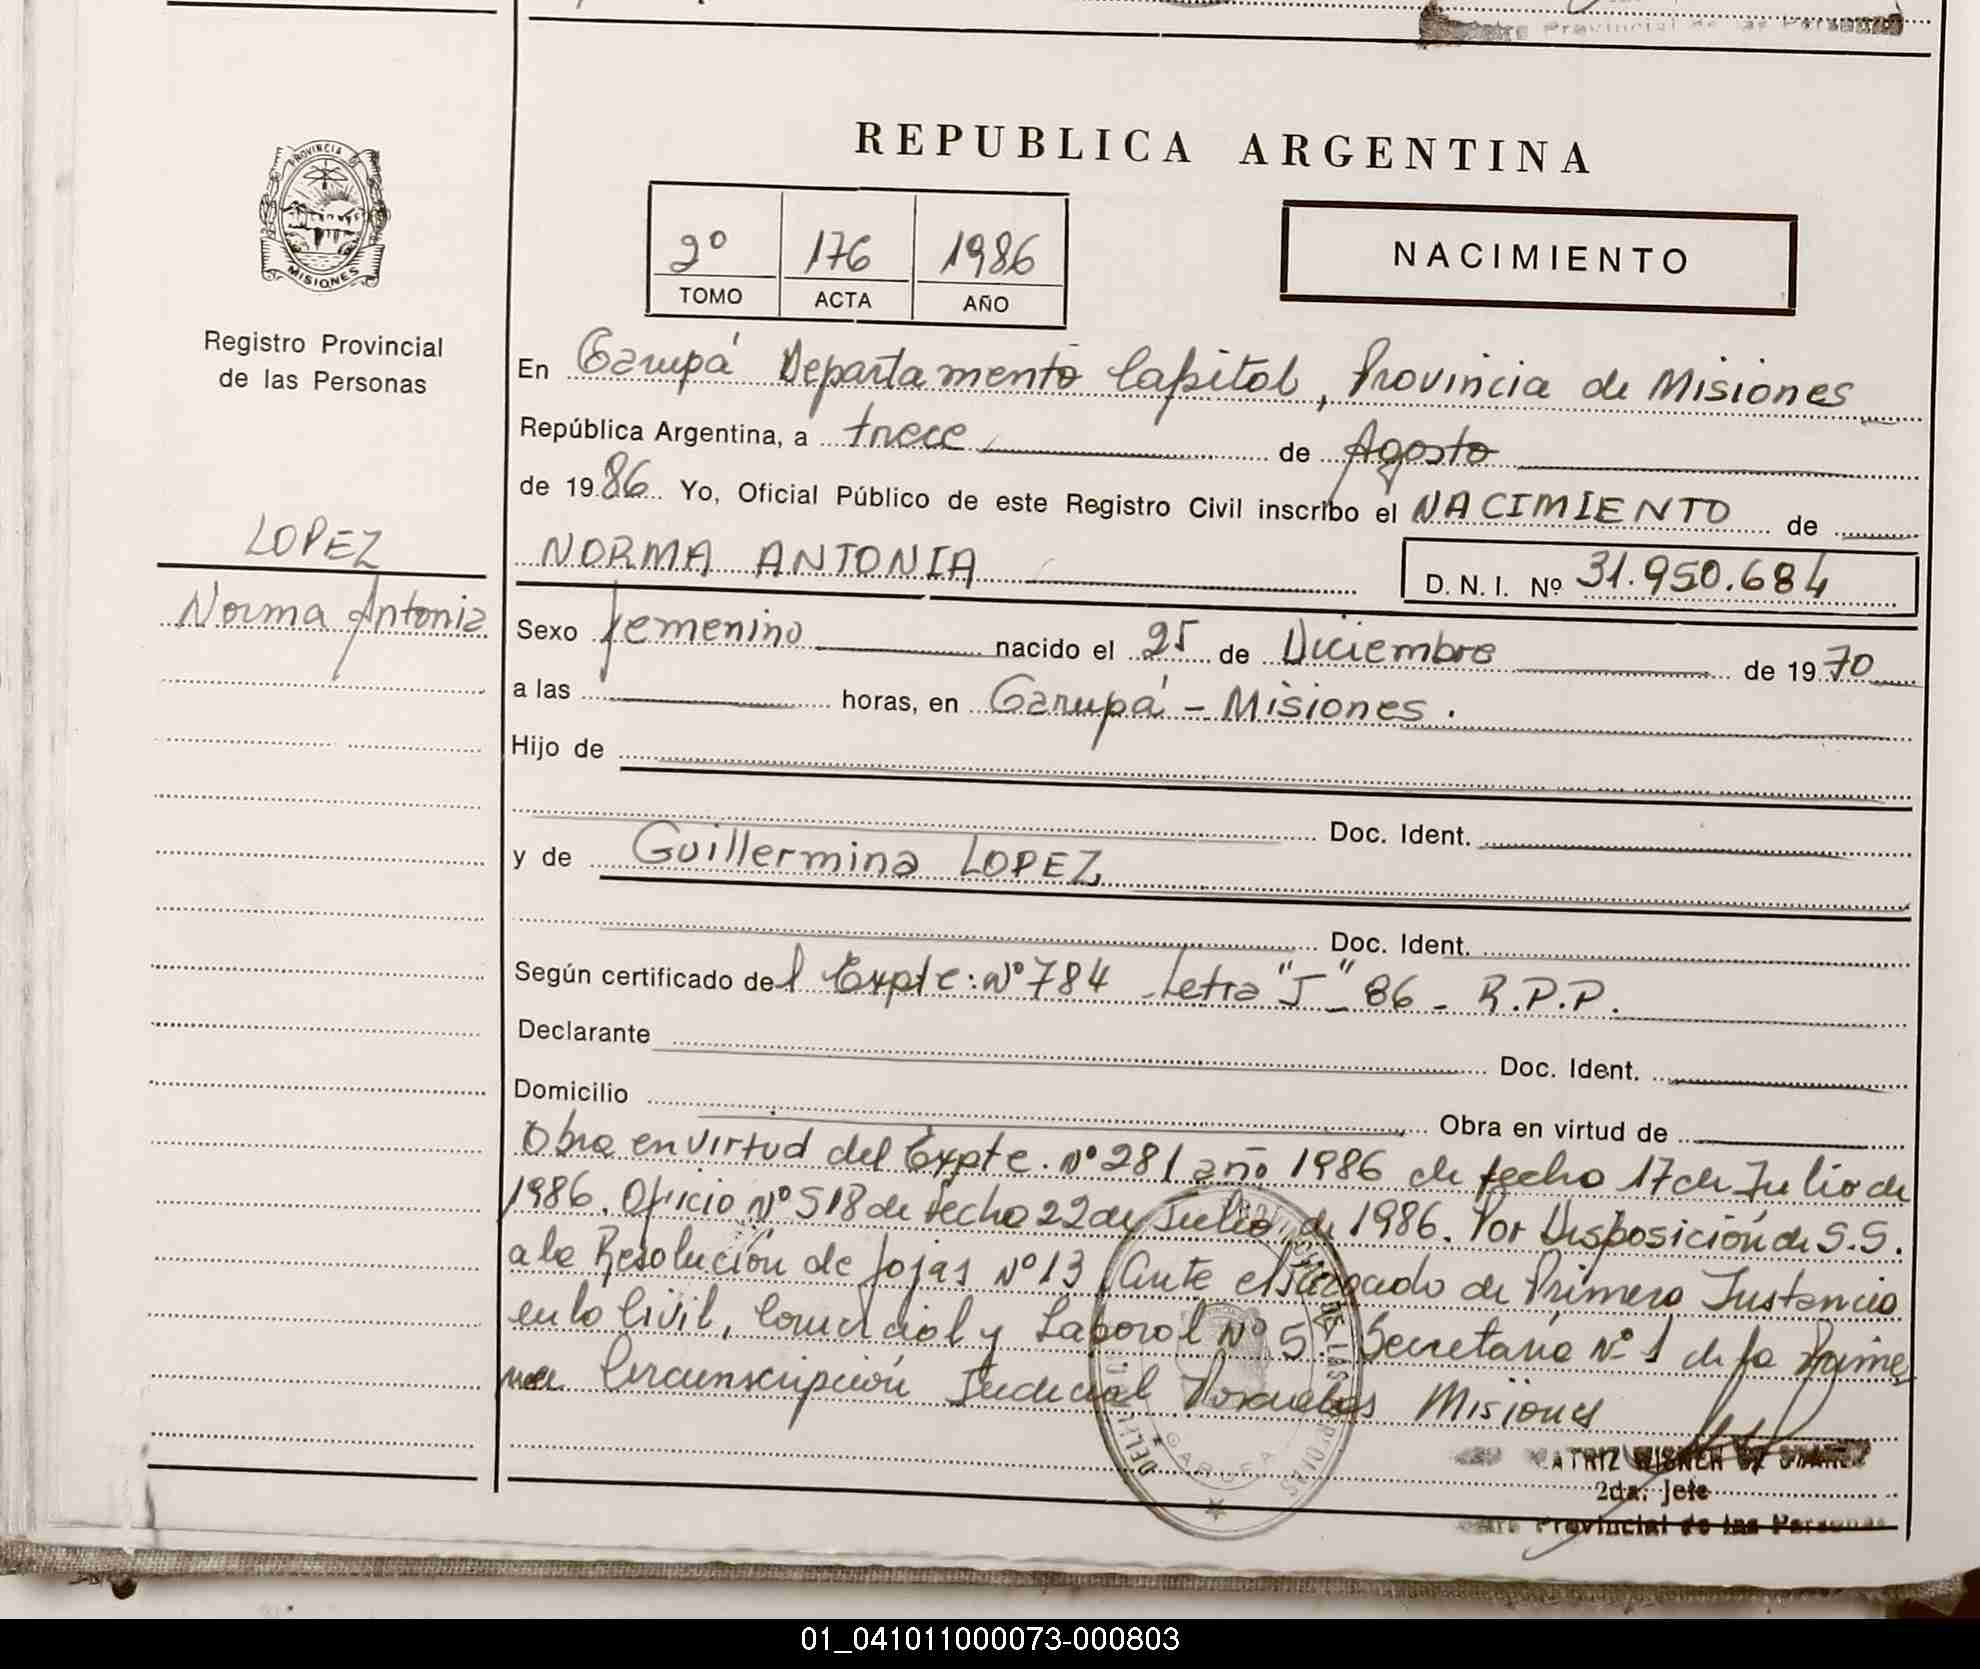 REPUBLICA ARGENTINA
PROVINCIA D
MISIONES
2º 176 1986
TOMO ACTA AÑO
NACIMIENTO
Registro Provincial
de las Personas
En Garupá Departamento Capital, Provincia de Misiones
República Argentina, a trece de Agosto
de 1986 Yo, Oficial Público de este Registro Civil inscribo el NACIMIENTO de
LOPEZ
NORMA ANTONIA D. N. I. Nº 31.950.684
Norma Antonia
Sexo femenino nacido el 25 de Diciembre de 1970
a las horas, en Garupá - Misiones.
Hijo de
Doc. Ident.
y de Guillermina LOPEZ
Doc. Ident.
Según certificado del Expte: Nº 784 Letra "J" 86 - R.P.P.
Declarante Doc. Ident.
Domicilio Obra en virtud de
Obra en virtud del Expte. Nº 281 año 1986 de fecha 17 de Julio de
1986. Oficio Nº 518 de fecha 22 de Julio de 1986. Por Disposición de S.S.
a la Resolución de fojas Nº 13, Ante el Juzgado de Primera Instancia
en lo Civil, Comercial y Laboral Nº 5 Secretaria Nº 1 de la Prime
ra Circunscripción Judicial Posadas Misiones
GARUPA
ATRIZ WISNER DE
2da. Jefe
Provincial de las Personas
01_041011000073-000803